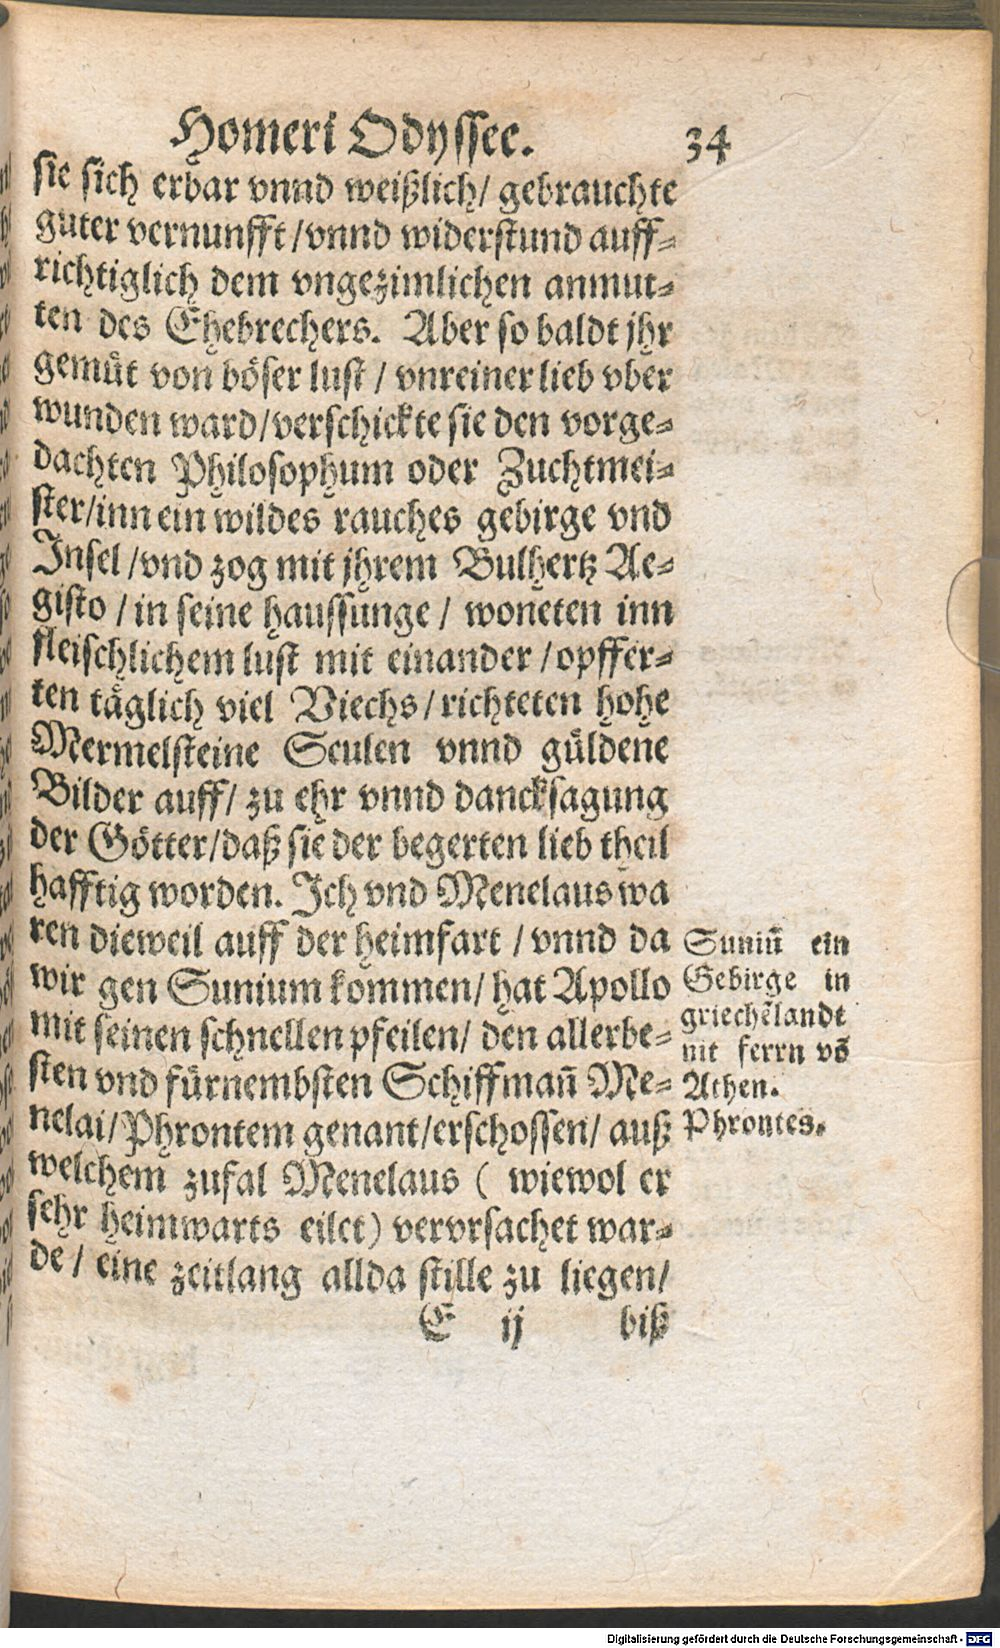 Homeri Odyssee. 34
sie sich erbar vnnd weißlich/ gebrauchte
guter vernunfft/vnnd widerstund auff-
richtiglich dem vngezimlichen anmut-
ten des Ehebrechers. Aber so baldt jhr
gemüt von böser lust / vnreiner lieb vber
wunden ward/verschickte sie den vorge-
dachten Philosophum oder Zuchtmei-
ster/inn ein wildes rauches gebirge vnd
Insel /vnd zog mit jhrem Bulhertz Ae-
gisto / in seine haussunge / woneten inn
fleischlichem lust mit einander /opffer-
ten täglich viel Viechs/richteten hohe
Mermelsteine Seulen vnnd güldene
Bilder auff/ zu ehr vnnd dancksagung
der Götter/daß sie der begerten lieb theil
hafftig worden. Ich vnd Menelaus wa
ren dieweil auff der heimfart / vnnd da
wir gen Sunium kommen/ hat Apollo
mit seinen schnellen pfeilen/ den allerbe-
sten vnd fürnembsten Schiffmañ Me-
nelai/Phrontem genant/erschossen/ auß
welchem zufal Menelaus ( wiewol er
sehr heimwarts eilet) vervrsachet war-
de / eine zeitlang allda stille zu liegen/
E ij biß
Suniũ ein
Gebirge in
griechẽlandt
nit ferrn võ
Athen.
Phrontes.
Digitalisierung gefördert durch die Deutsche Forschungsgemeinschaft - DFG